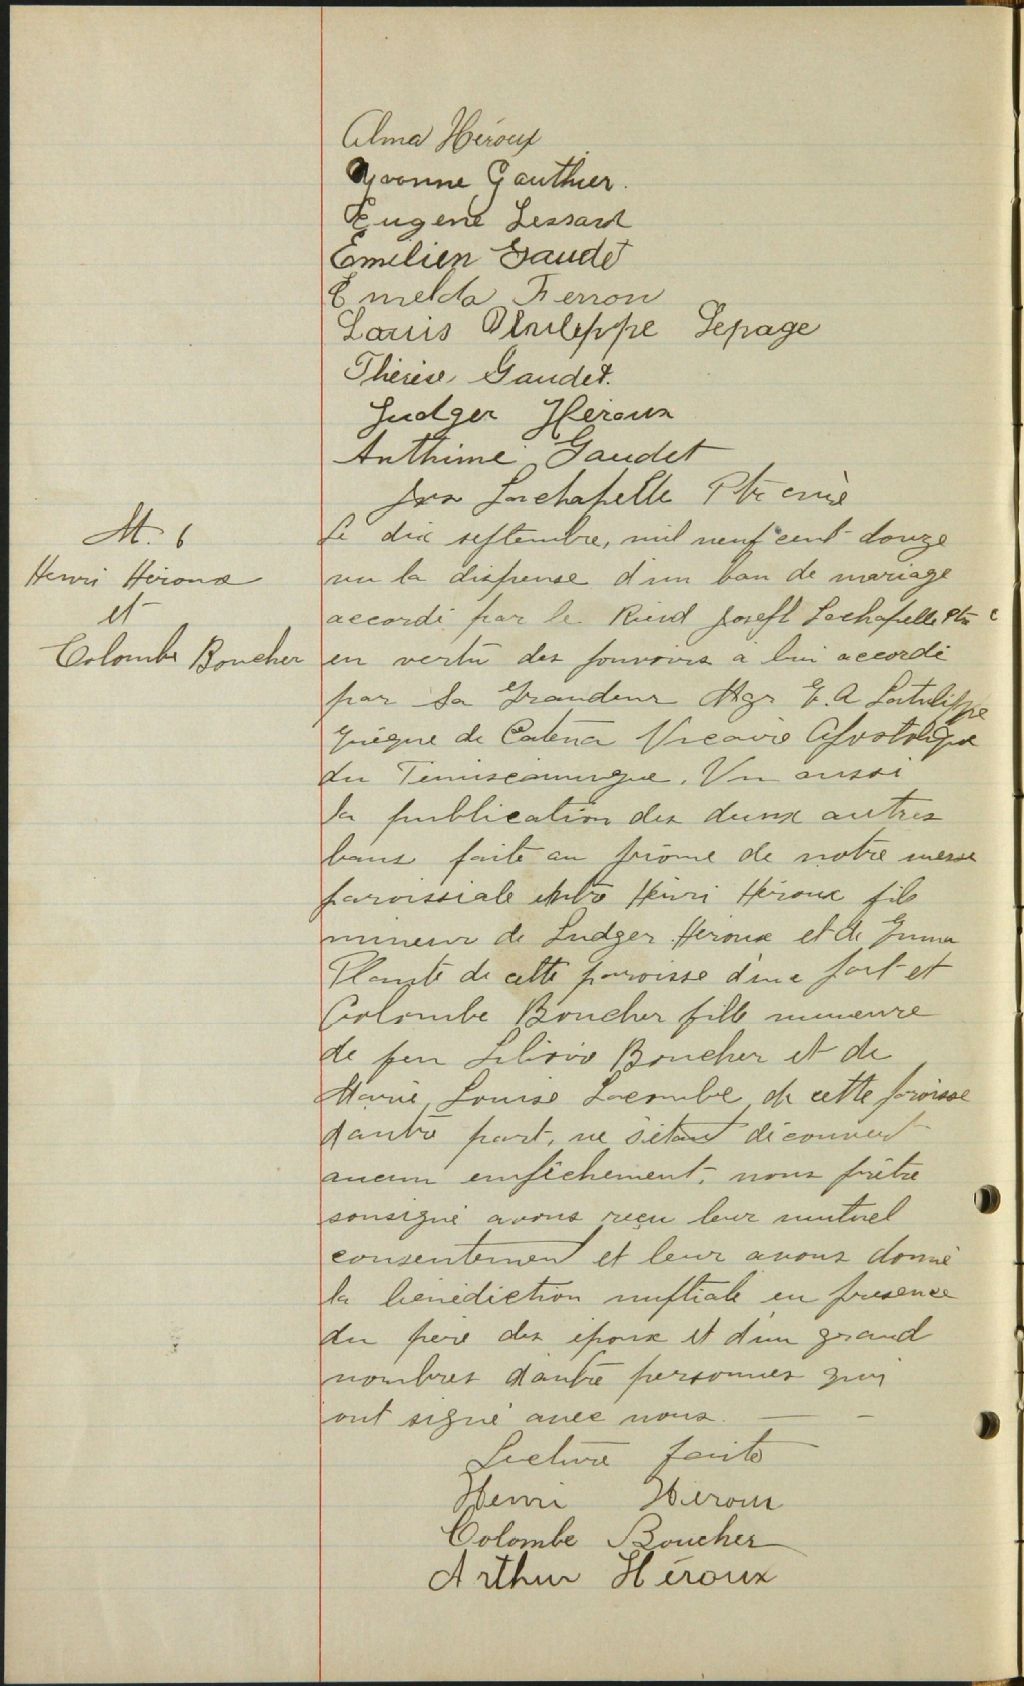 Alma Héroux
Yvonne Gauthier.
Eugène Lessard
Emélien Gaudet
Emelda Ferron
Louis Philippe Lepage
Thérèse Gaudet.
Ludger Héroux
Anthime Gaudet
Jos Lachapelle Ptr curé
M. 6
Henri Héroux
et
Colombe Boucher
Le dix septembre, mil neuf cent douze
vu la dispense d'un ban de mariage
accordé par le Rvend Joseph Lachapelle Ptr c
en vertu des pouvoirs à lui accordé
par Sa Grandeur Mgr E. A Latulippe
de Catenna Vicaire Apostolique
du Temiscamingue. Vu aussi
la publication des deux autres
bans faite au prône de notre messe
paroissiale entre Henri Héroux fils
mineur de Ludger Héroux et de Emma
Plante de cette paroisse d'une part et
Colombe Boucher fille mineure
de feu Boucher et de
Marie Louise Lacombe de cette paroisse
d'autre part, ne s'étant découvert
aucun empêchement, nous prêtre
sousigné avons reçu leur mutuel
consentement et leur avons donné
la bénédiction nuptiale en présence
du père des époux et d'un grand
nombres d'autre personnes qui
ont signé avec nous. — —
Lecture faite
Henri Héroux
Colombe Boucher
Arthur Héroux